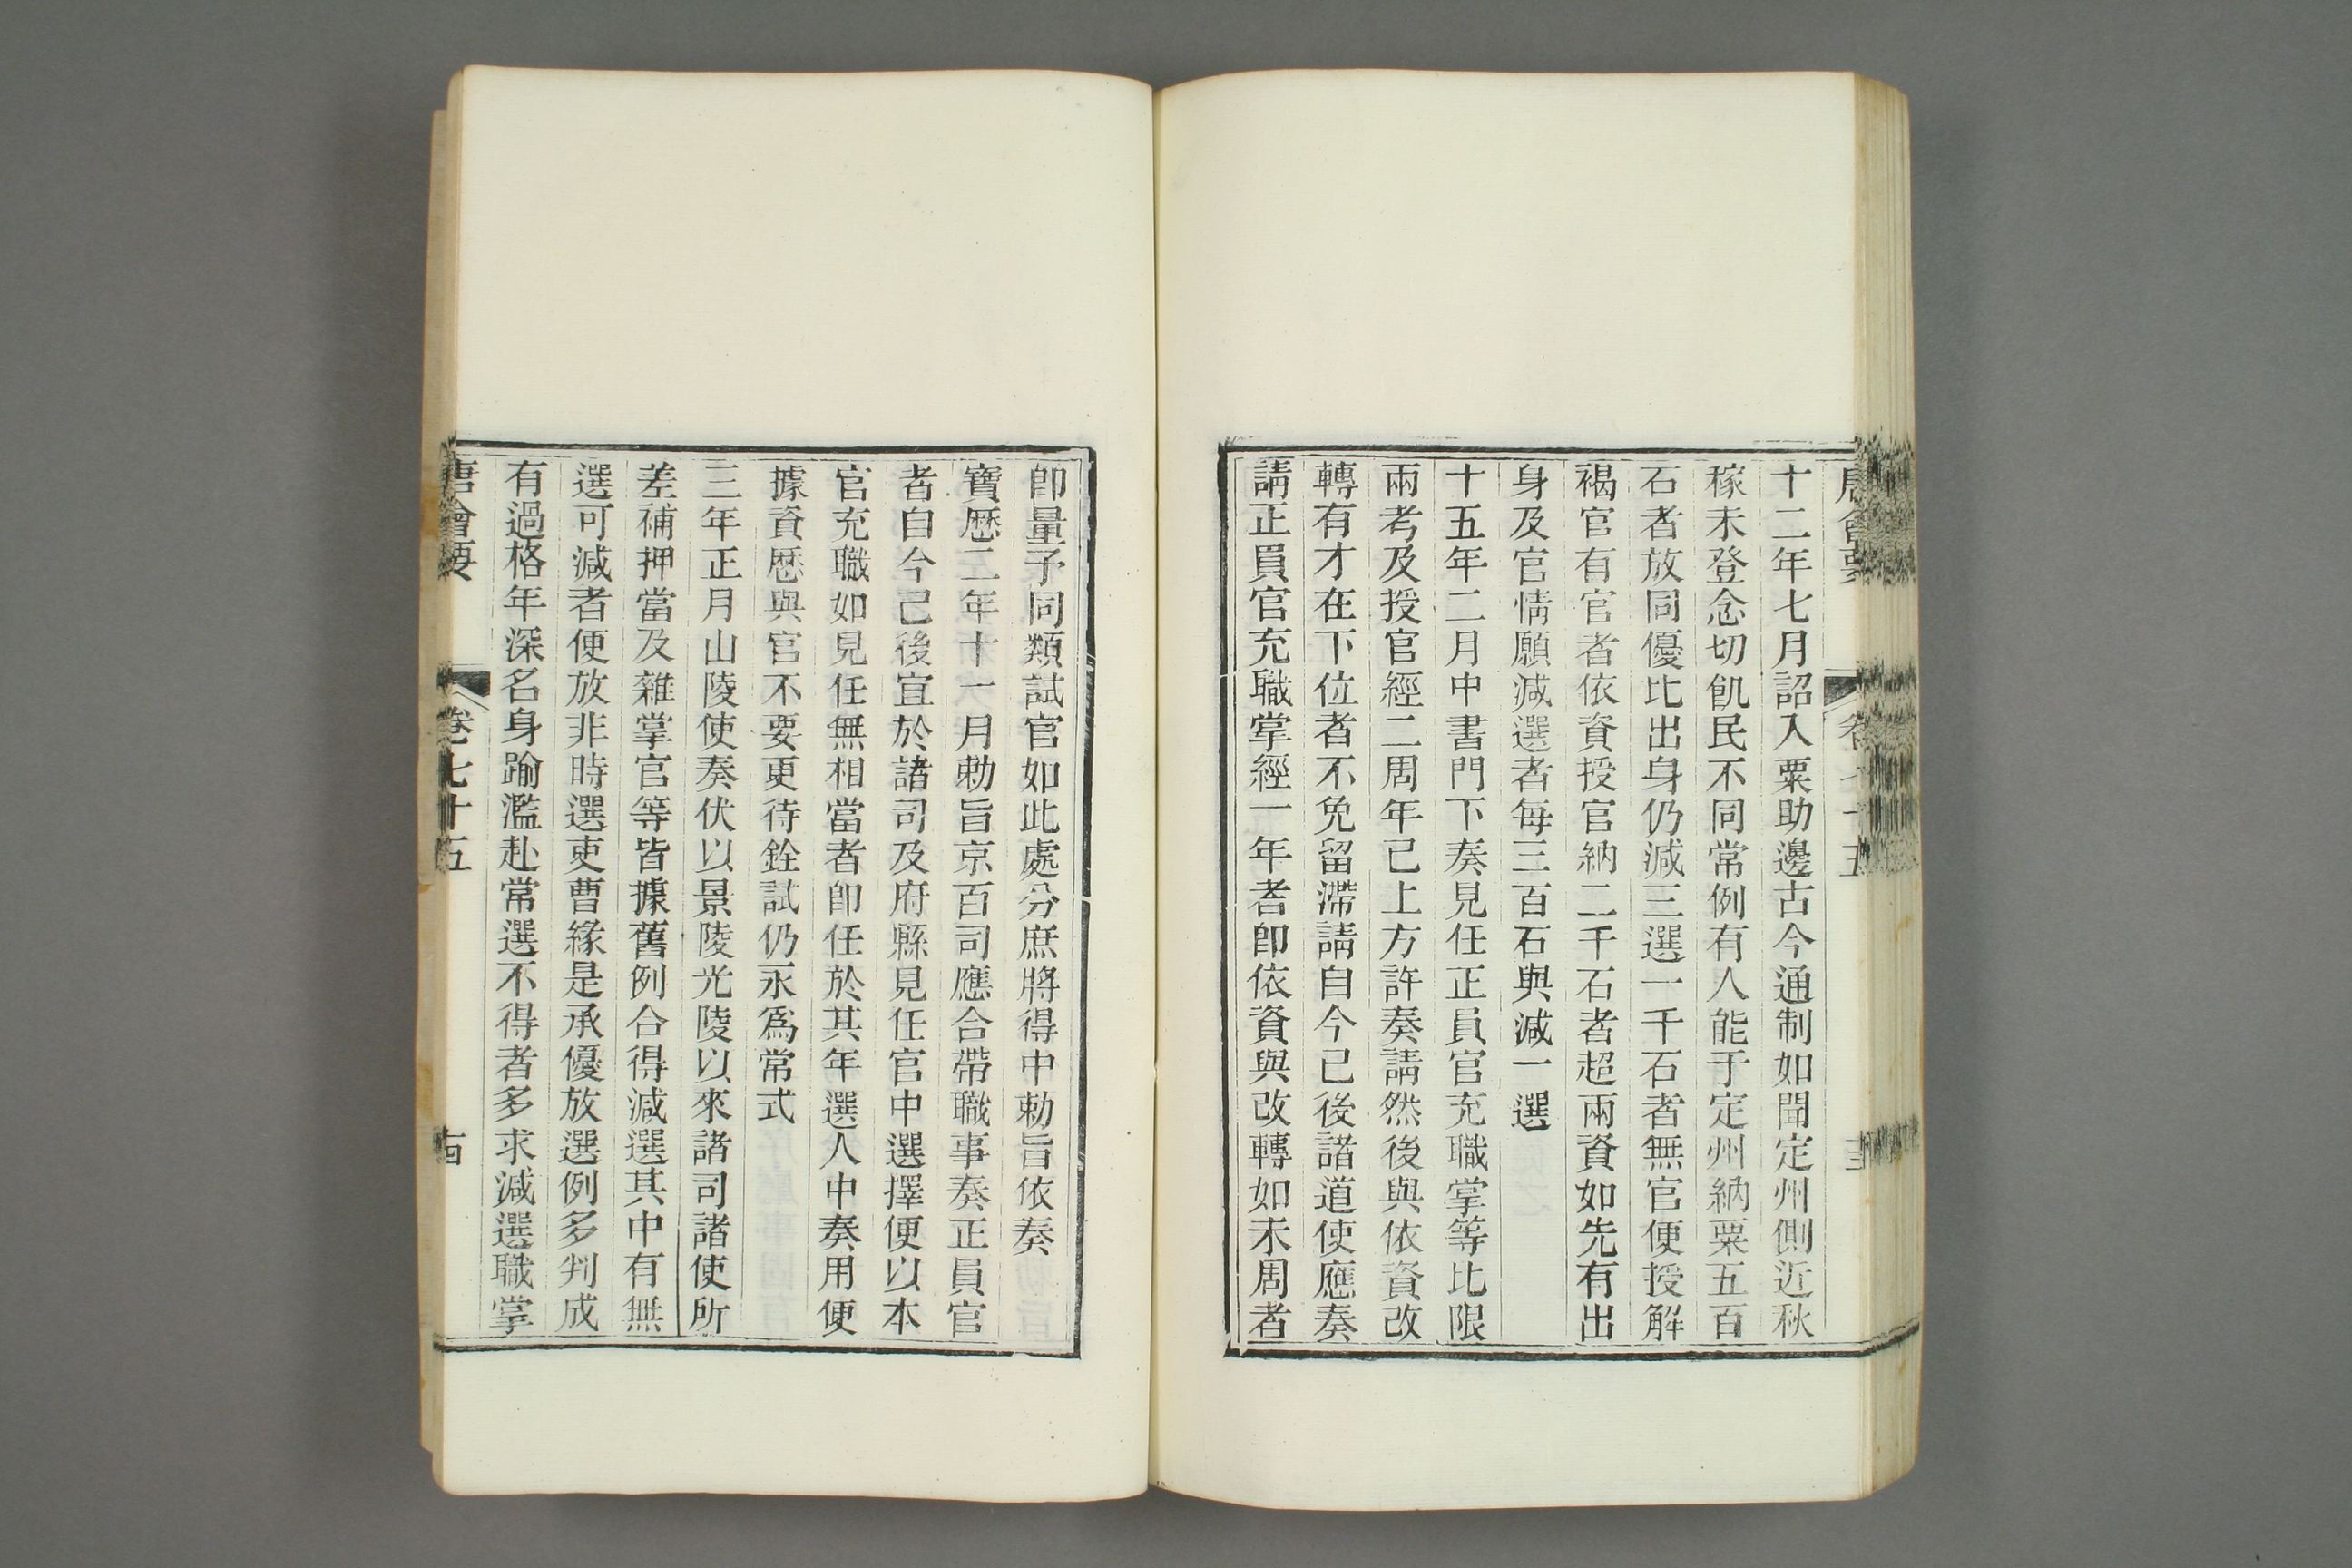 唐會要 卷七十五 十三
十二年七月詔入粟助邊古今通制如聞定州側近秋
稼未登念切飢民不同常例有人能于定州納粟五百
石者放同優比出身仍減三選一千石者無官便授解
褐官有官者依資授官納二千石者超兩資如先有出
身及官情願減選者每三百石與減一選
十五年二月中書門下奏見任正員官充職掌等比限
兩考及授官經二周年已上方許奏請然後與依資改
轉有才在下位者不免留滯請自今已後諸道使應奏
請正員官充職掌經一年者卽依資與改轉如未周者
卽量予同類試官如此處分庶將得中勅旨依奏
寶歷二年十一月勅旨京百司應合帶職事奏正員官
者自今已後宜於諸司及府縣見任官中選擇便以本
官充職如見任無相當者卽任於其年選人中奏用便
據資歷與官不要更待銓試仍永爲常式
三年正月山陵使奏伏以景陵光陵以來諸司諸使所
差補押當及雜掌官等皆據舊例合得減選其中有無
選可減者便放非時選吏曹緣是承優放選例多判成
有過格年深名身踰濫赴常選不得者多求減選職掌
唐會要 卷七十五 十四